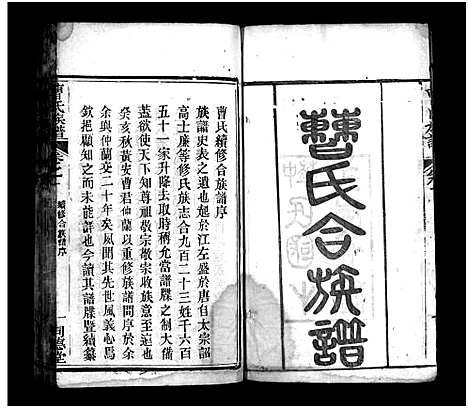 曹氏合族譜
曹氏續修合族譜序
族譜史表之遺也起於江左盛於唐自太宗詔
高士廉等修氏族志合九百二十三姓千六百
五十一家升降去取時稱允當譜牒之制大備
蓋欲使天下知尊祖敬宗敬宗收族意至這也
癸亥秋黃安曹君仲蘭以重修族譜問序於余
余與仲蘭交二十年矣夙聞其先世風義心焉
欽挹顧知之而未能詳也今讀其譜牒暨續纂
曹氏族譜
續修合族譜序
一